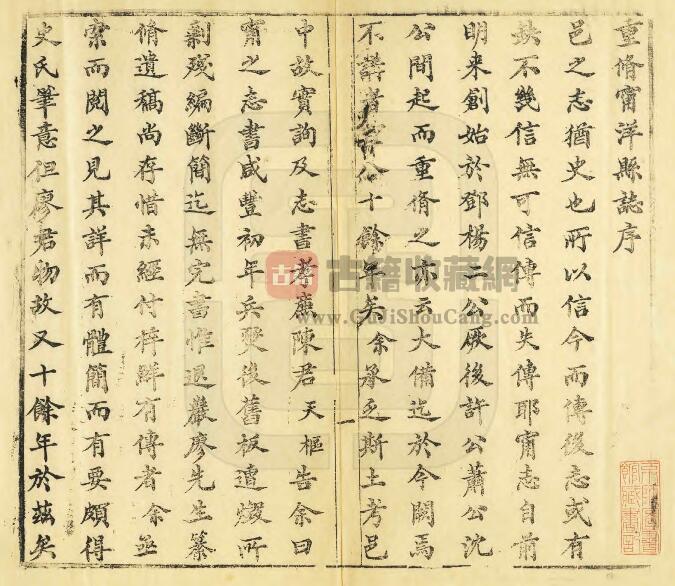 重脩甯洋縣誌序
邑之志猶史也所以信今而傳後志或有
缺不幾信無可信傳而失傳耶甯志自前
明来創始於鄧楊二公厥後許公蕭公沈
公間起而重脩之亦云大備迄於今闕焉
不講者 十餘年矣余承乏斯土考邑
中故實詢及志書孝廉陳君天樞告余曰
甯之志書咸豐初年兵燹後舊板遭燬所
剩殘編斷簡迄無完書惟退巖廖先生纂
脩遺稿尚存惜未經付梓鮮有傳者余亟
索而閱之見其詳而有體簡而有要頗得
史氏筆意但廖君物故又十餘年於茲矣
一
古籍收藏網
www.GuJiShouCang.com